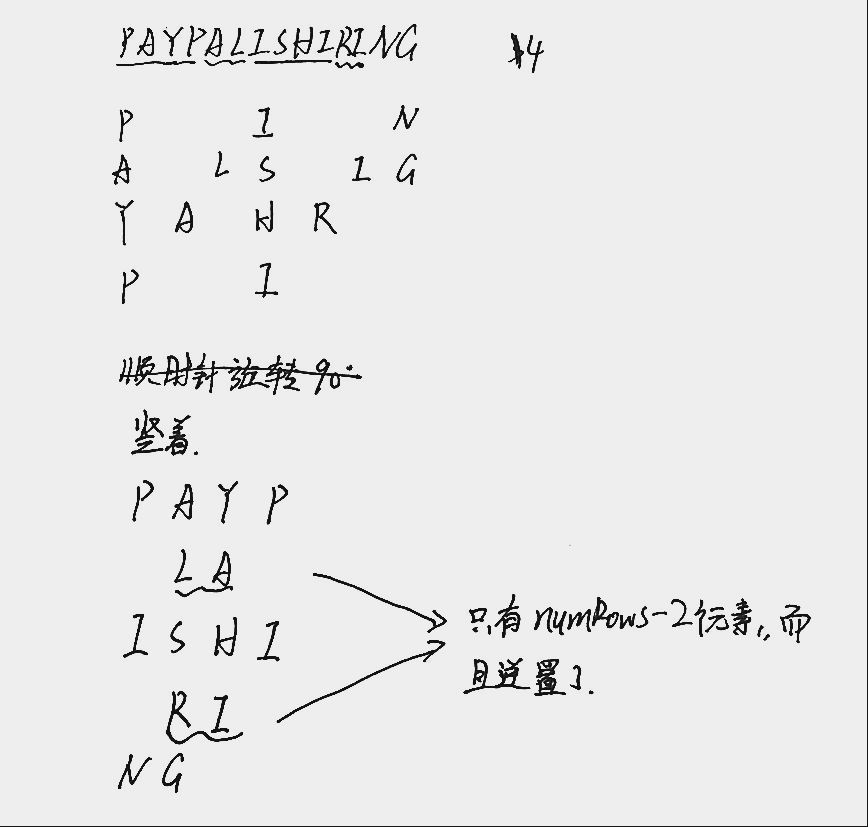 PAYPALISHIRING 14
P I N
A L S I G
Y A H R
P I
顺时针旋转90°
竖着.
P A Y P
L A
I S H I
R I
N G
只有numRows-2个元素,,而
且逆置了.